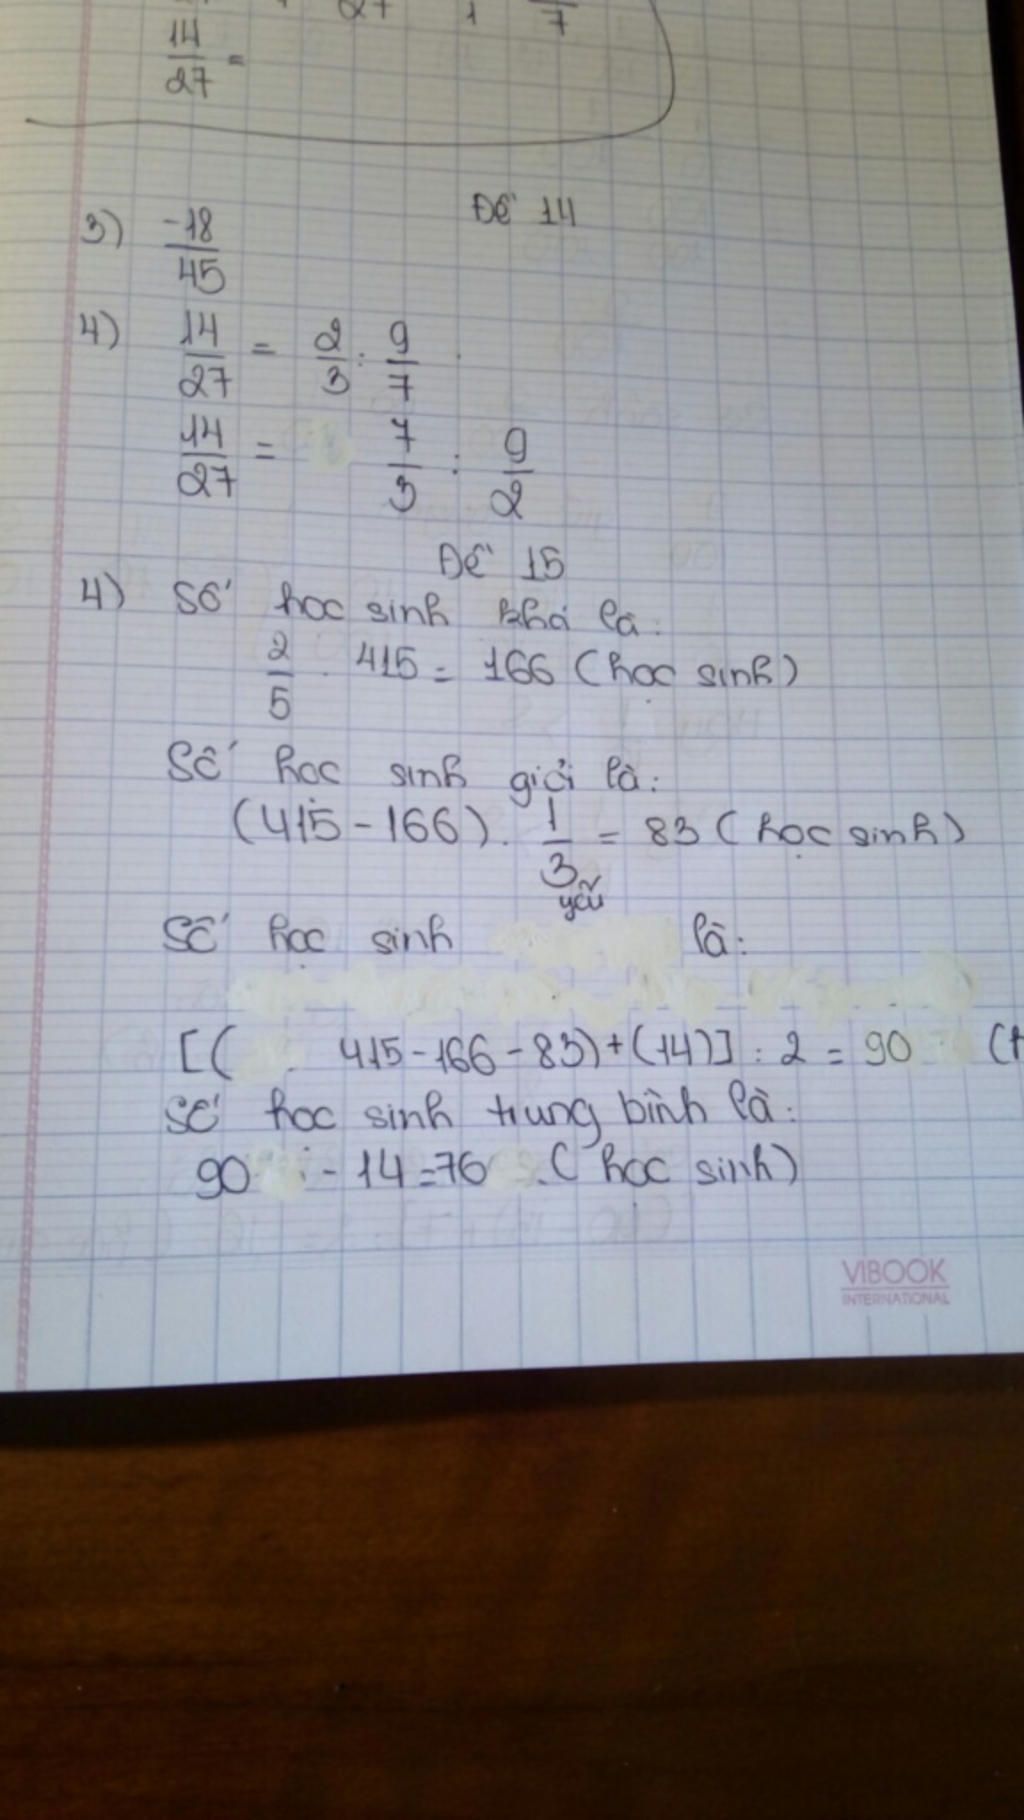 27 1 7
14/27 =
Đề 14
3) -18/45
4) 14/27 = 2/3 : 9/7
14/27 = 7/3 : 9/2
Đề 15
4) Số học sinh khá là:
2/5 . 415 = 166 (học sinh)
Số học sinh giỏi là:
(415 - 166) . 1/3 = 83 (học sinh)
Số học sinh yếu là:
[( 415 - 166 - 83) + (14)] : 2 = 90 (
Số học sinh trung bình là:
90 - 14 = 76 (học sinh)
VIBOOK
INTERNATIONAL